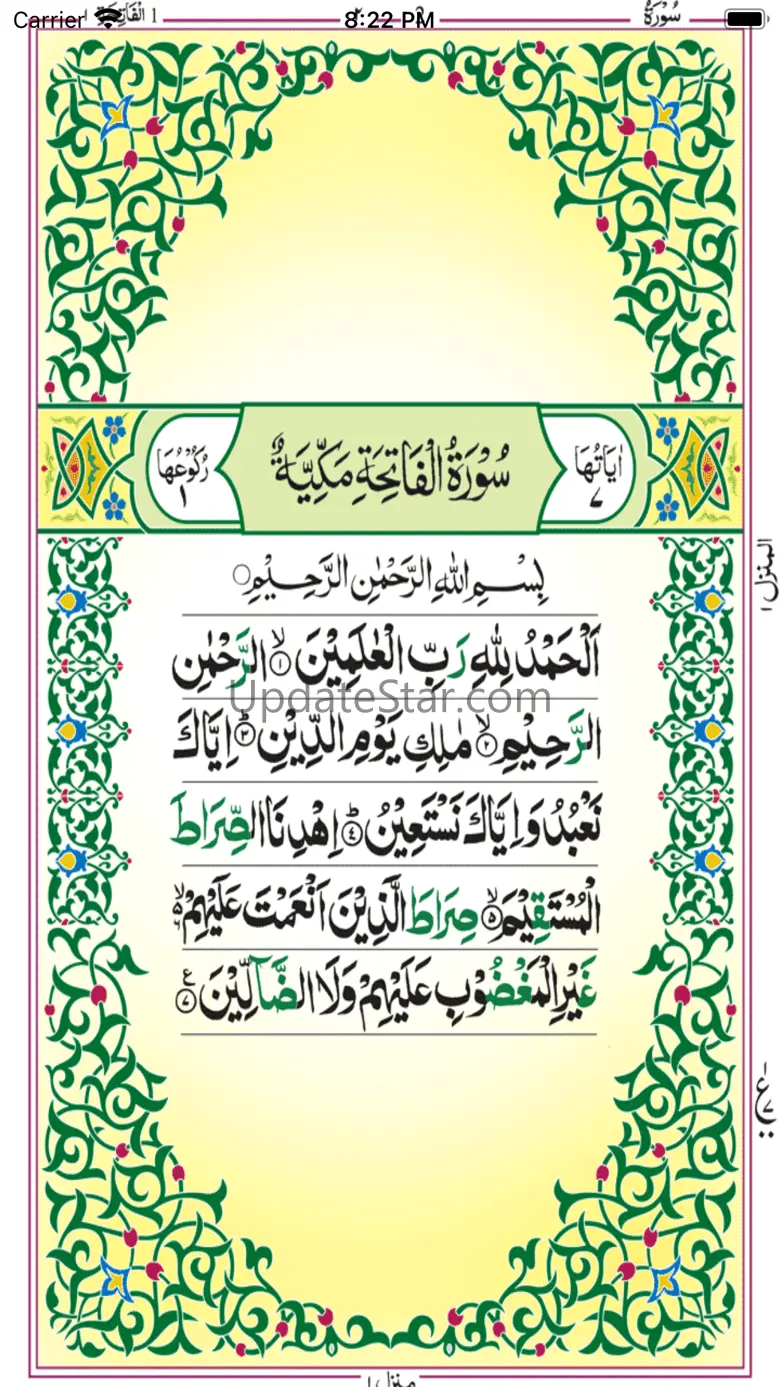 Carrier 8:22 PM
١ الْفَاتِحَة ١
سُوْرَةُ
رُكُوْعُهَا ١
سُوْرَةُ الْفَاتِحَةِ مَكِّيَّةٌ
اٰيَاتُهَا ٧
بِسْمِ اللّٰهِ الرَّحْمٰنِ الرَّحِيْمِ
اَلْحَمْدُ لِلّٰهِ رَبِّ الْعٰلَمِيْنَ ۙ‏﴿١﴾ الرَّحْمٰنِ
الرَّحِيْمِ ۙ‏﴿٢﴾ مٰلِكِ يَوْمِ الدِّيْنِ ؕ‏﴿٣﴾ اِيَّاكَ
نَعْبُدُ وَ اِيَّاكَ نَسْتَعِيْنُ ؕ‏﴿٤﴾ اِهْدِنَا الصِّرَاطَ
الْمُسْتَقِيْمَ ۙ‏﴿٥﴾ صِرَاطَ الَّذِيْنَ اَنْعَمْتَ عَلَيْهِمْ ۙ
غَيْرِ الْمَغْضُوْبِ عَلَيْهِمْ وَلَا الضَّآلِّيْنَ ﴿٧﴾ ع
UpdateStar.com
المنزل ١
منزل ١